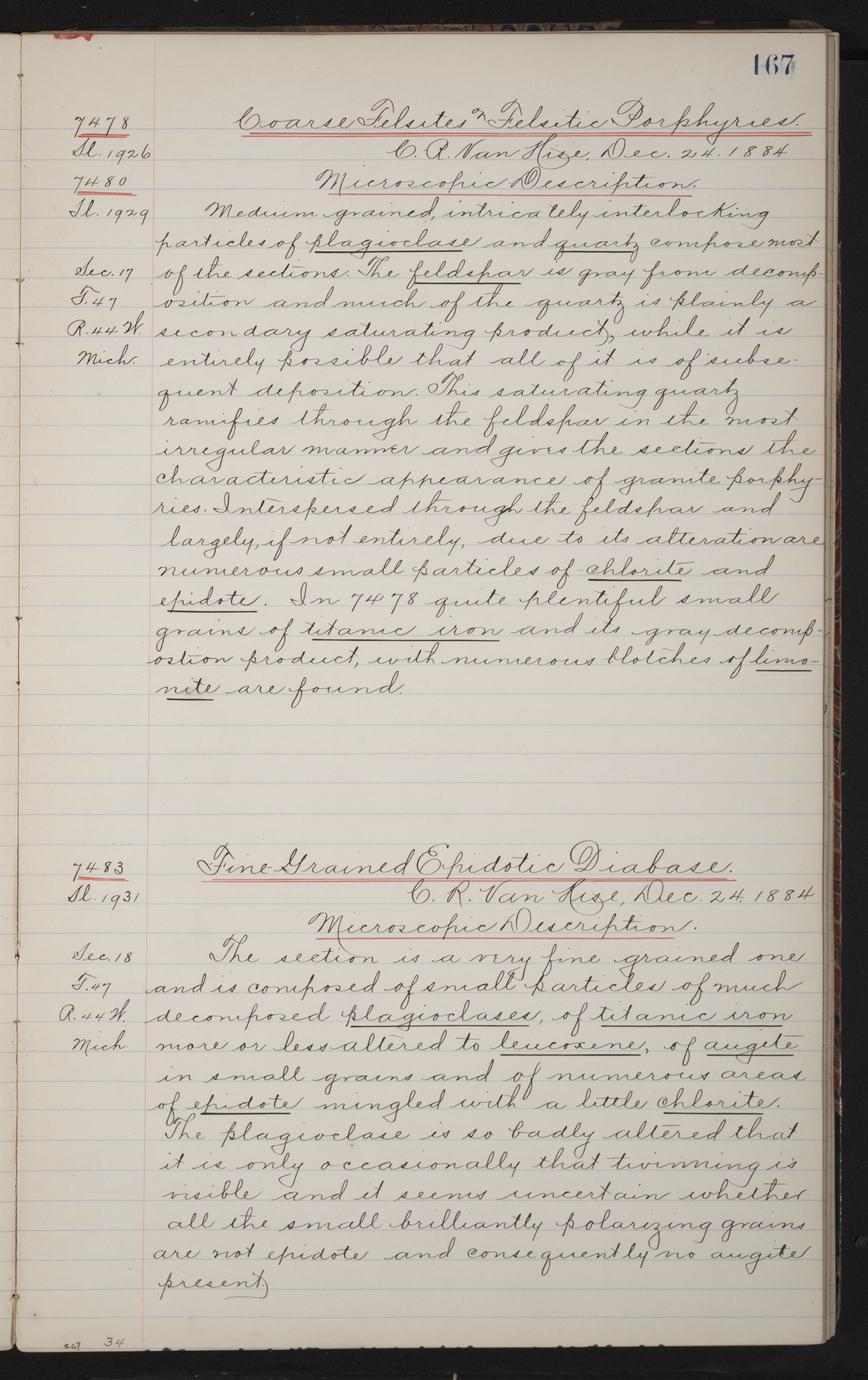 167
7478 Coarse Felsites or Felsitic Porphyries.
Sl. 1926 C. R. Van Hise, Dec. 24. 1884
7480 Microscopic Description.
Sl. 1929 Medium grained, intricately interlocking
particles of plagioclase and quartz compose most
Sec. 17 of the sections. The feldspar is gray from decomp-
T. 47 osition and much of the quartz is plainly a
R. 44 W. secondary saturating product, while it is
Mich. entirely possible that all of it is of subse-
quent deposition. This saturating quartz
ramifies through the feldspar in the most
irregular manner and gives the sections the
characteristic appearance of granite porphy-
ries. Interspersed through the feldspar and
largely, if not entirely, due to its alteration are
numerous small particles of chlorite and
epidote. In 7478 quite plentiful small
grains of titanic iron and its gray decomp-
ostion product, with numerous blotches of limo-
nite are found.
7483 Fine Grained Epidotic Diabase.
Sl. 1931 C. R. Van Hise, Dec. 24. 1884
Microscopic Description.
Sec. 18 The section is a very fine grained one
T. 47 and is composed of small particles of much
R. 44 W. decomposed plagioclases, of titanic iron
Mich more or less altered to leucoxene, of augite
in small grains and of numerous areas
of epidote mingled with a little chlorite.
The plagioclase is so badly altered that
it is only occasionally that twinning is
visible and it seems uncertain whether
all the small brilliantly polarizing grains
are not epidote and consequently no augite
present.
267 34